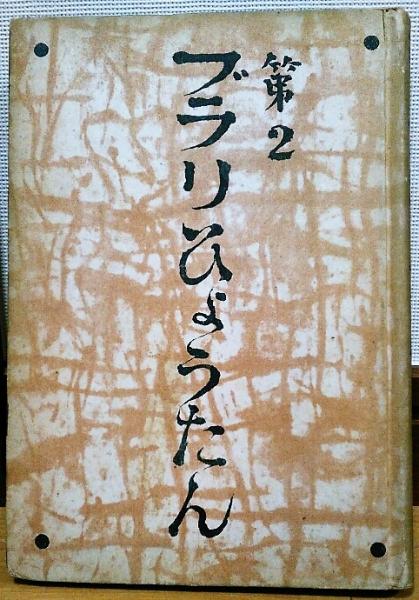 第2
ブラリひょうたん